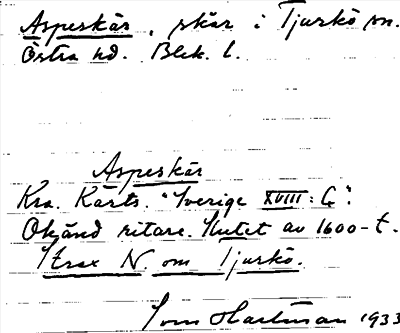 Asperskär, skär i Tjurkö sn.
Östra hd. Blek. l.
Asperskär
Kra. Karts. "Sverige XVIII: G".
Okänd ritare. Slutet av 1600-t.
Strax N. om Tjurkö.
Hartman 1933